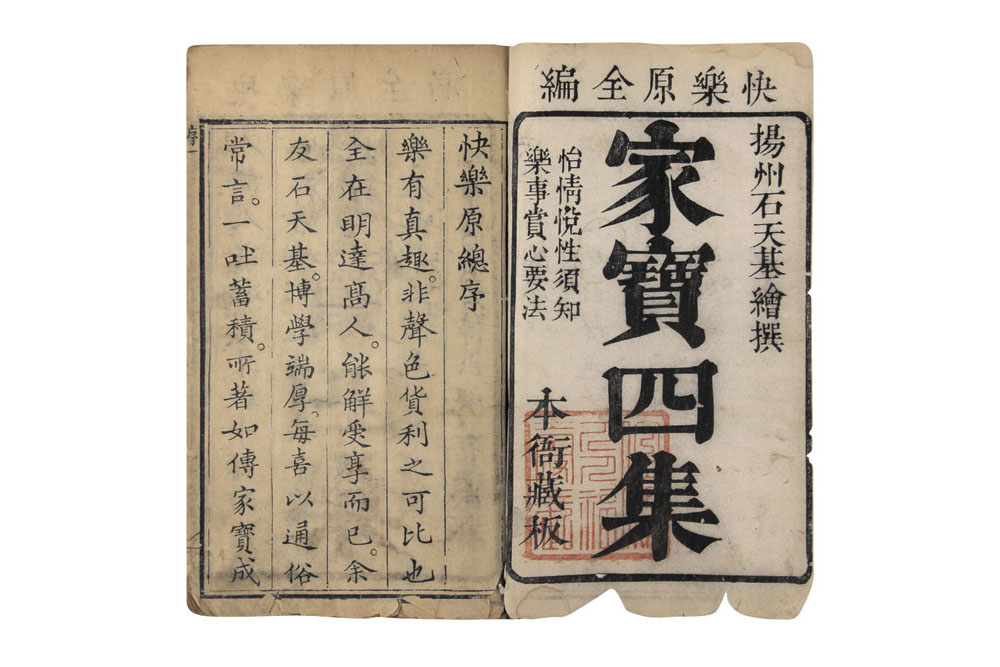 快樂原全編
揚州石天基繪撰
家寶四集
怡情悅性須知
樂事賞心要法
本衙藏板
快樂原總序
樂有真趣。非聲色貨利之可比也
全在明達高人。能解受享而已。余
友石天基。博學端厚。每喜以通俗
常言。一吐蓄積。所著如傳家寶成